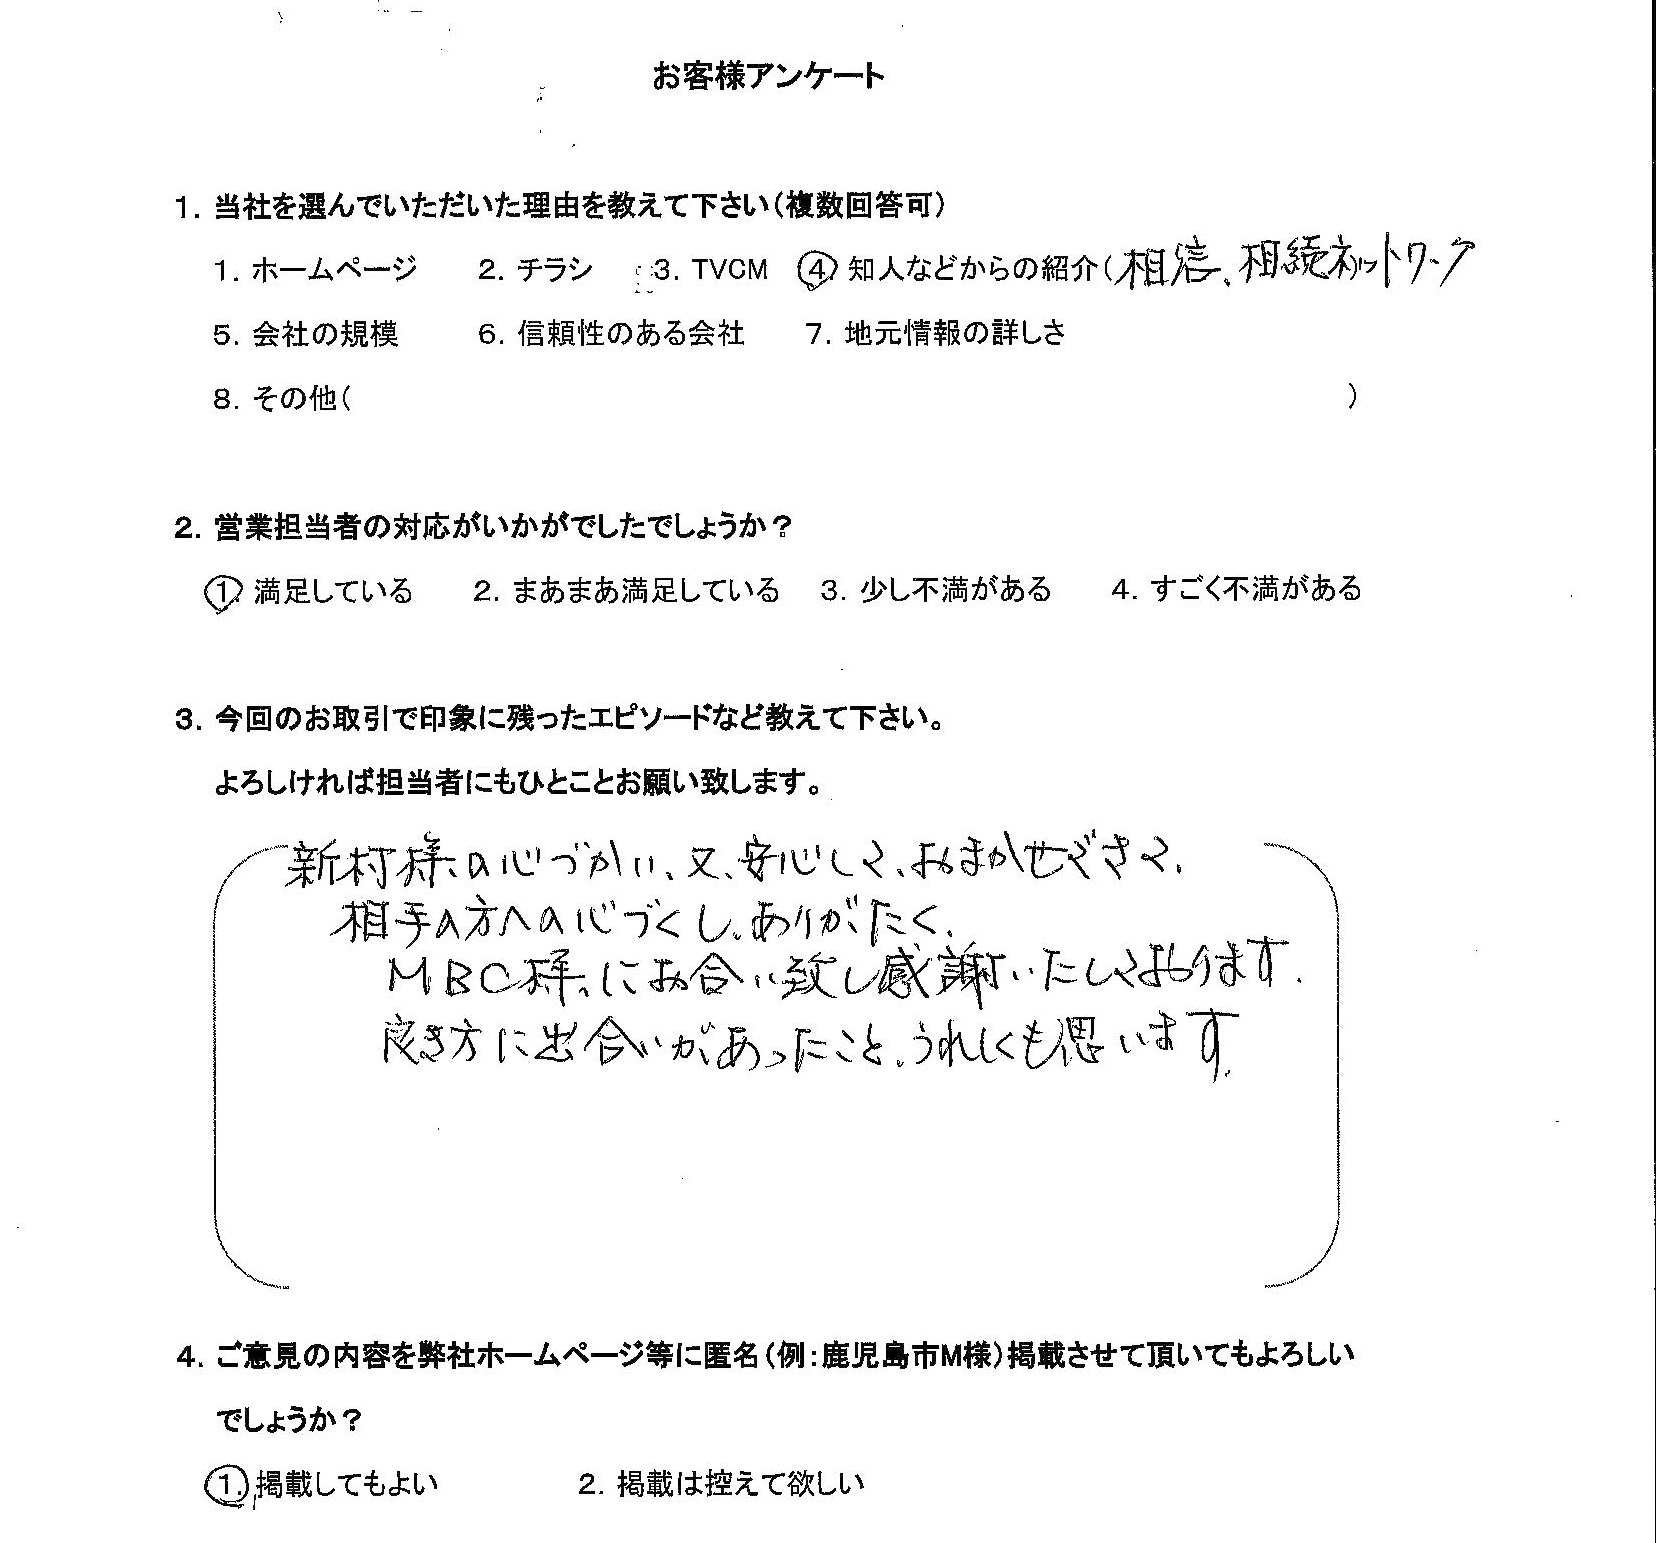 お客様アンケート
1. 当社を選んでいただいた理由を教えて下さい(複数回答可)
1. ホームページ 2. チラシ 3. TVCM ④ 知人などからの紹介(相信、相続ネットワーク
5. 会社の規模 6. 信頼性のある会社 7. 地元情報の詳しさ
8. その他( )
2. 営業担当者の対応がいかがでしたでしょうか?
①. 満足している 2. まあまあ満足している 3. 少し不満がある 4. すごく不満がある
3. 今回のお取引で印象に残ったエピソードなど教えて下さい。
よろしければ担当者にもひとことお願い致します。
新村様の心づかい、又、安心して、おまかせできて、
相手の方への心づくし、ありがたく、
MBC様にお合い致し感謝いたしております.
良き方に出合いがあったこと、うれしくも思います.
4. ご意見の内容を弊社ホームページ等に匿名(例:鹿児島市M様)掲載させて頂いてもよろしい
でしょうか?
①. 掲載してもよい 2. 掲載は控えて欲しい